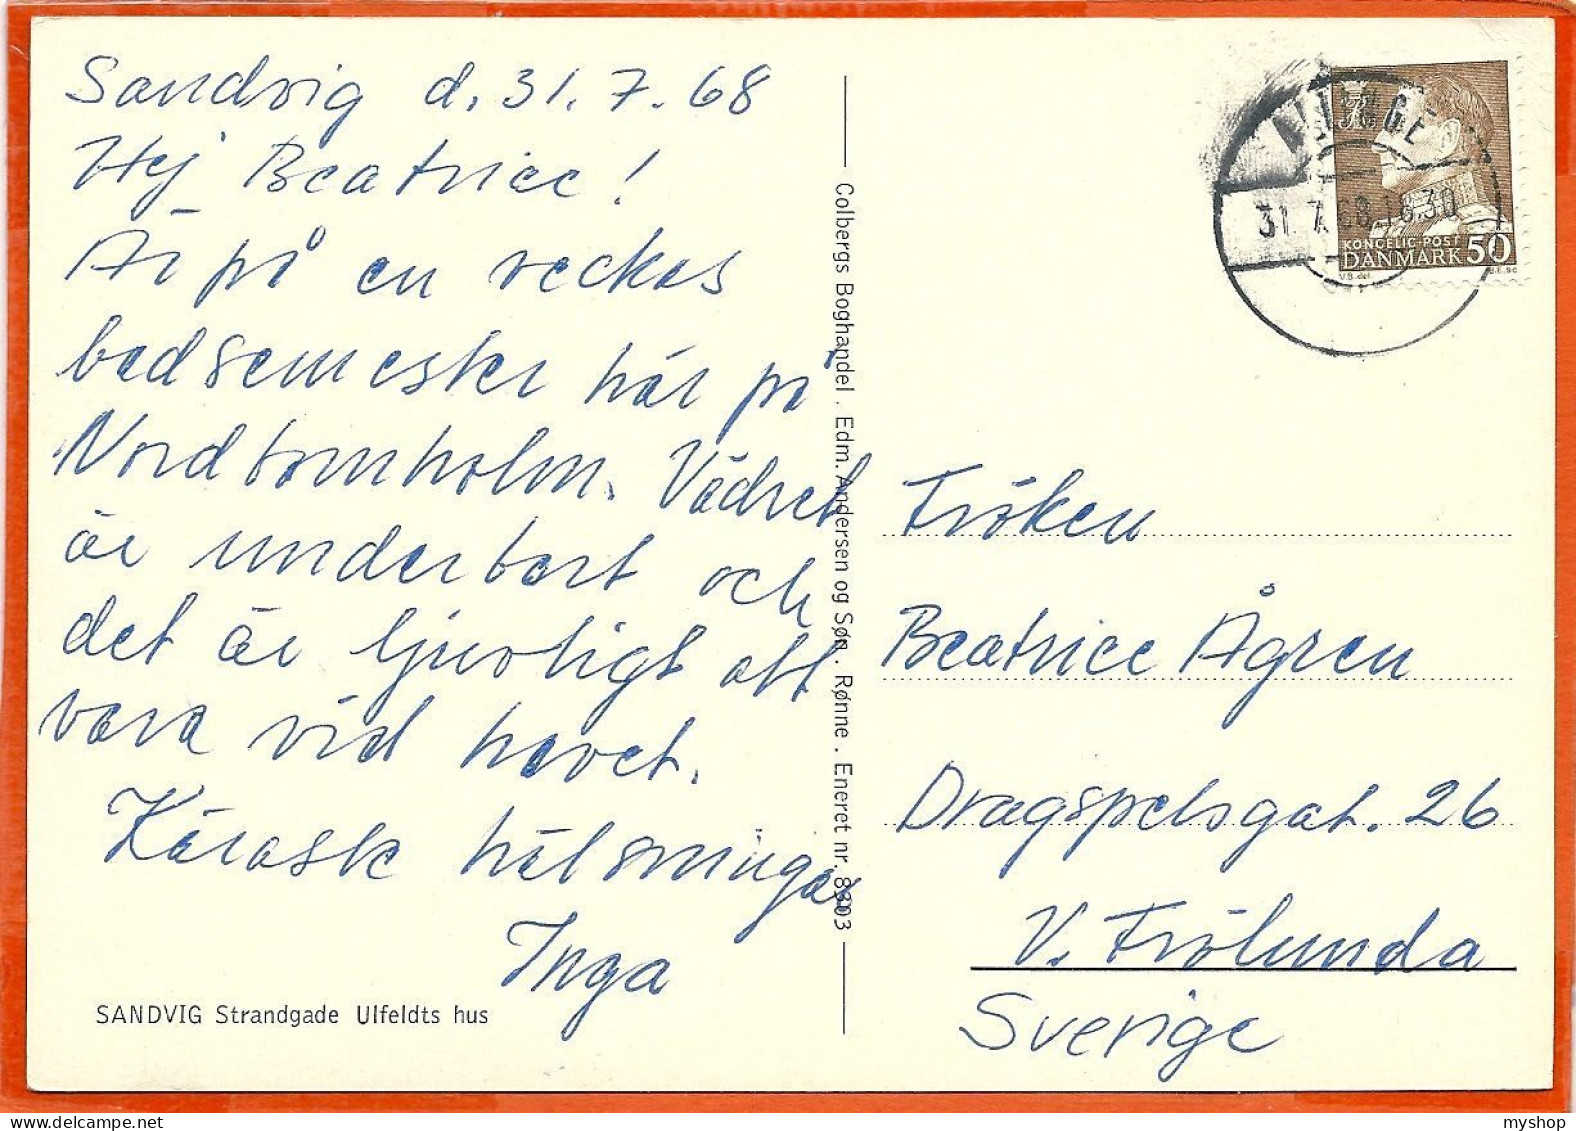 Sandvig d. 31. 7. 68
Hej Beatrice!
Är på en veckas
badsemester här på
Nordbornholm. Vädret
är underbart och
det är ljuvligt att
vara vid havet.
Käraste hälsningar
Inga
SANDVIG Strandgade Ulfeldts hus
Colbergs Boghandel . Edm. Andersen og Søn . Rønne . Eneret nr. 8303
ALLINGE
31. 7. 68. 18.30
KONGELIG POST
DANMARK 50
V.B. del B.E. sc
Fröken
Beatrice Ågren
Dragspelsgat. 26
V. Frölunda
Sverige
myshop